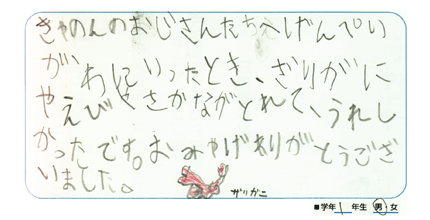 きゃのんのおじさんたちへげんぺい
がわにいったとき、ざりがに
やえびやさかながとれて、うれし
かったです。おみやげありがとうござ
いました。
ザリガニ
■学年 1 年生 男・女